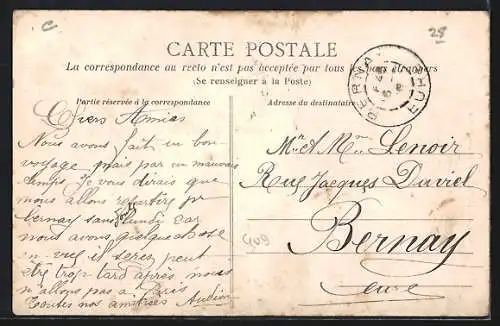 C
28
CARTE POSTALE
La correspondance au recto n'est pas acceptée par tous les pays étrangers
(Se renseigner à la Poste)
Partie réservée à la correspondance
Chers Amies
Nous avons fait un bon
voyage mais par un mauvais
temps. Je vous dirais que
nous allons repartir pr
Bernay sans lundi car
nous avons quelque chose
en vue il serez peut
être trop tard après nous
n'allons pas a Paris
Toutes nos amitiées
Adresse du destinataire
BERNAY
EURE
Mr & Mme Lenoir
Rue Jacques Daviel
Bernay
Eure
909